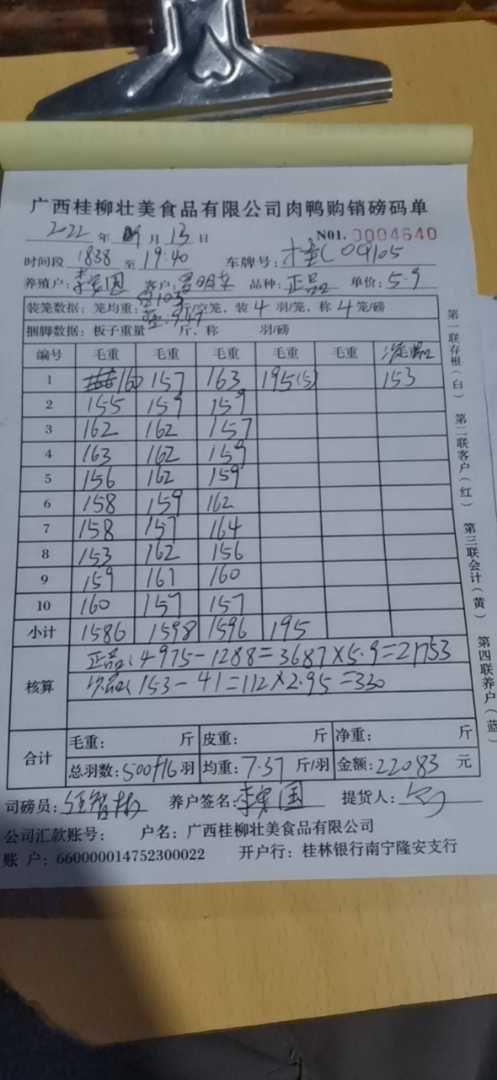 广西桂柳壮美食品有限公司肉鸭购销磅码单
2022 年 月 13 日 N01. 0004640
时间段 1838 至 19:40 车牌号: 桂C 09105
养殖户: 国 客户: 品种: 正品 单价: 5.9
装笼数据: 笼均重: 斤/空笼、装 4 羽/笼、称 4 笼/磅
捆脚数据: 板子重量 斤、称 羽/磅
编号 毛重 毛重 毛重 毛重 毛重
1 160 157 163 195(5) 153
2 155 159 159
3 162 162 157
4 163 162 159
5 156 162 159
6 158 159 162
7 158 157 164
8 153 162 156
9 159 161 160
10 160 157 157
小计 1586 1598 1596 195
核算
正品: 4975-1288=3687×5.9=21753
153-41=112×2.95=330
合计
毛重: 斤 皮重: 斤 净重: 斤
总羽数: 500+16 羽 均重: 7.37 斤/羽 金额: 22083 元
司磅员: 养户签名: 国 提货人:
公司汇款账号: 户名: 广西桂柳壮美食品有限公司
账 户: 660000014752300022 开户行: 桂林银行南宁隆安支行
第一联存根(白) 第二联客户(红) 第三联会计(黄) 第四联养户(蓝)